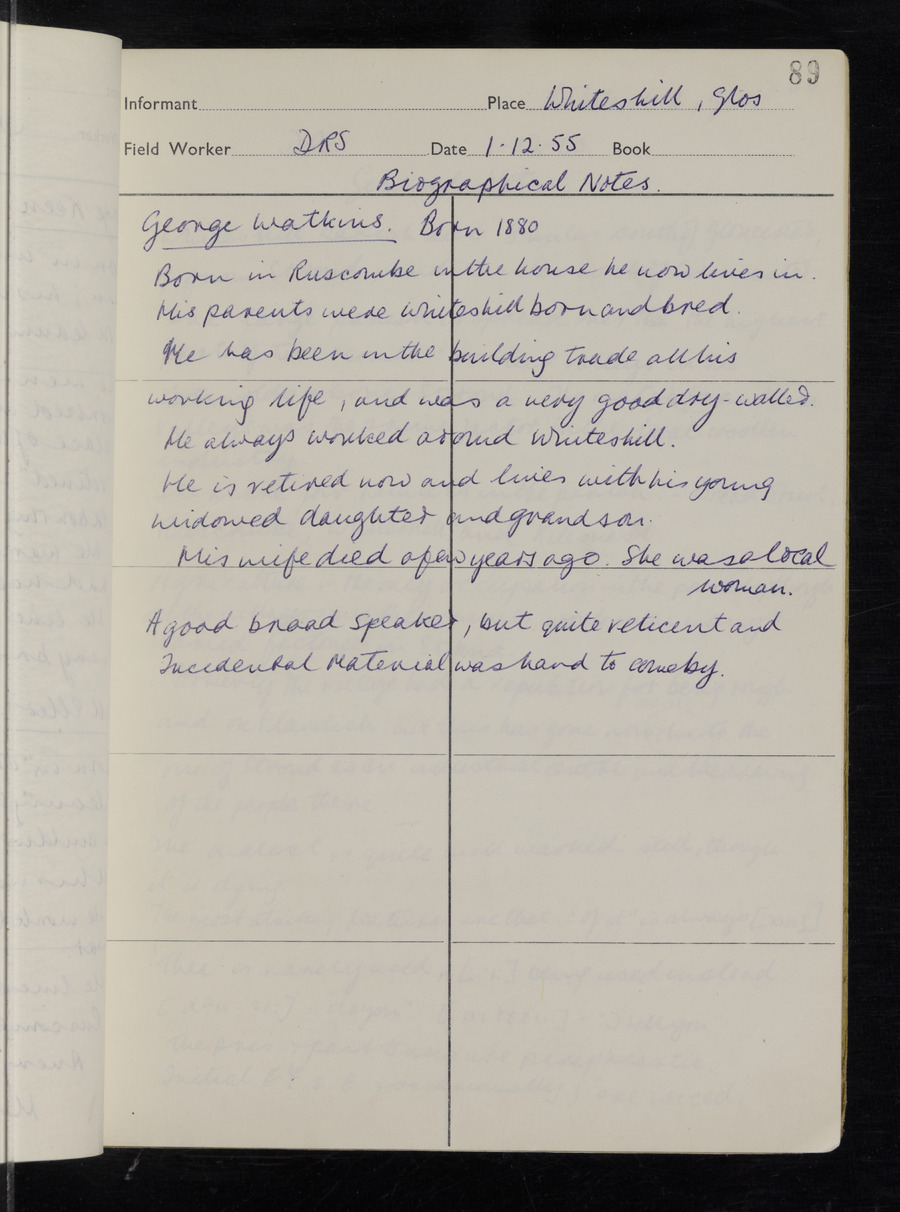 89
Informant Place Whiteshill, Glos
Field Worker DRS Date 1·12·55 Book
Biographical Notes.
George Watkins. Born 1880
Born in Ruscombe in the house he now lives in.
His parents were Whiteshill born and bred.
He has been in the building trade all his
working life, and was a very good dry-waller.
He always worked around Whiteshill.
He is retired now and lives with his young
widowed daughter and grandson.
His wife died a few years ago. She was a local
woman.
A good broad speaker, but quite reticent and
Incidental Material was hard to come by.